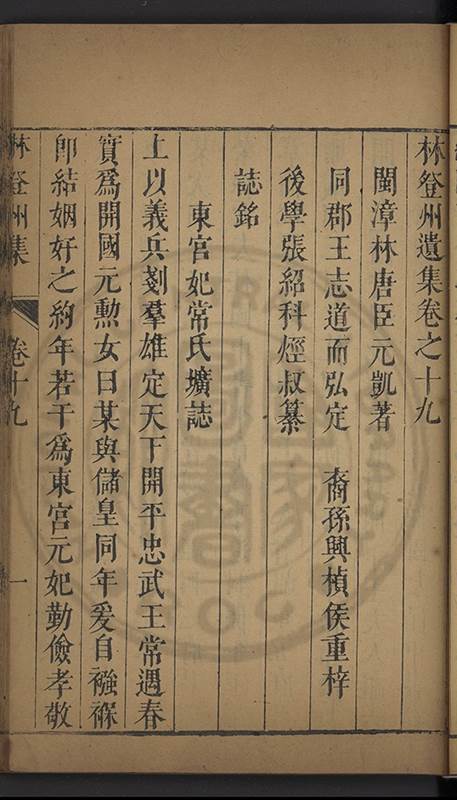 林登州遺集卷之十九
閩漳林唐臣元凱著
同郡王志道而弘定　裔孫興楨侯重梓
後學張紹科烴叔纂
誌銘
東宮妃常氏壙誌
上以義兵剗羣雄定天下開平忠武王常遇春
實為開國元勲女曰某與儲皇同年爰自襁褓
卽結姻好之約年若干為東宮元妃勤儉孝敬
林登州集　卷十九　一